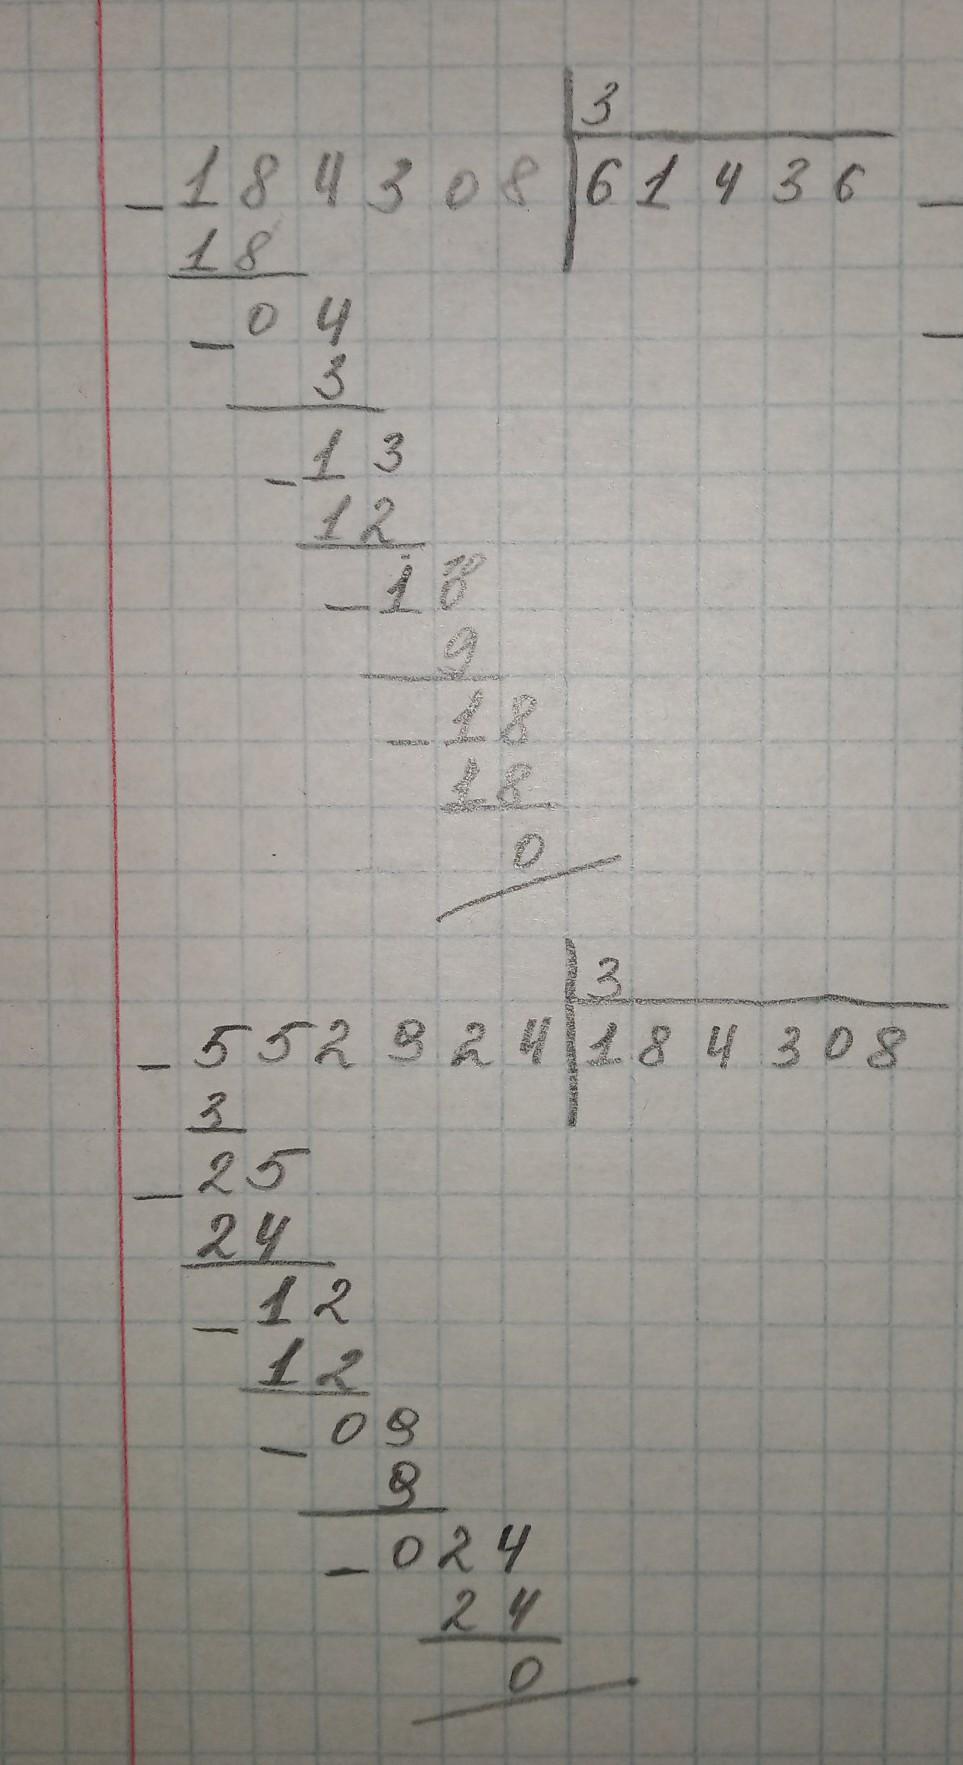 3
- 1 8 4 3 0 8 6 1 4 3 6
1 8
- 0 4
3
- 1 3
1 2
- 1 0
9
- 1 8
1 8
0
3
- 5 5 2 9 2 4 1 8 4 3 0 8
3
- 2 5
2 4
- 1 2
1 2
- 0 9
9
- 0 2 4
2 4
0